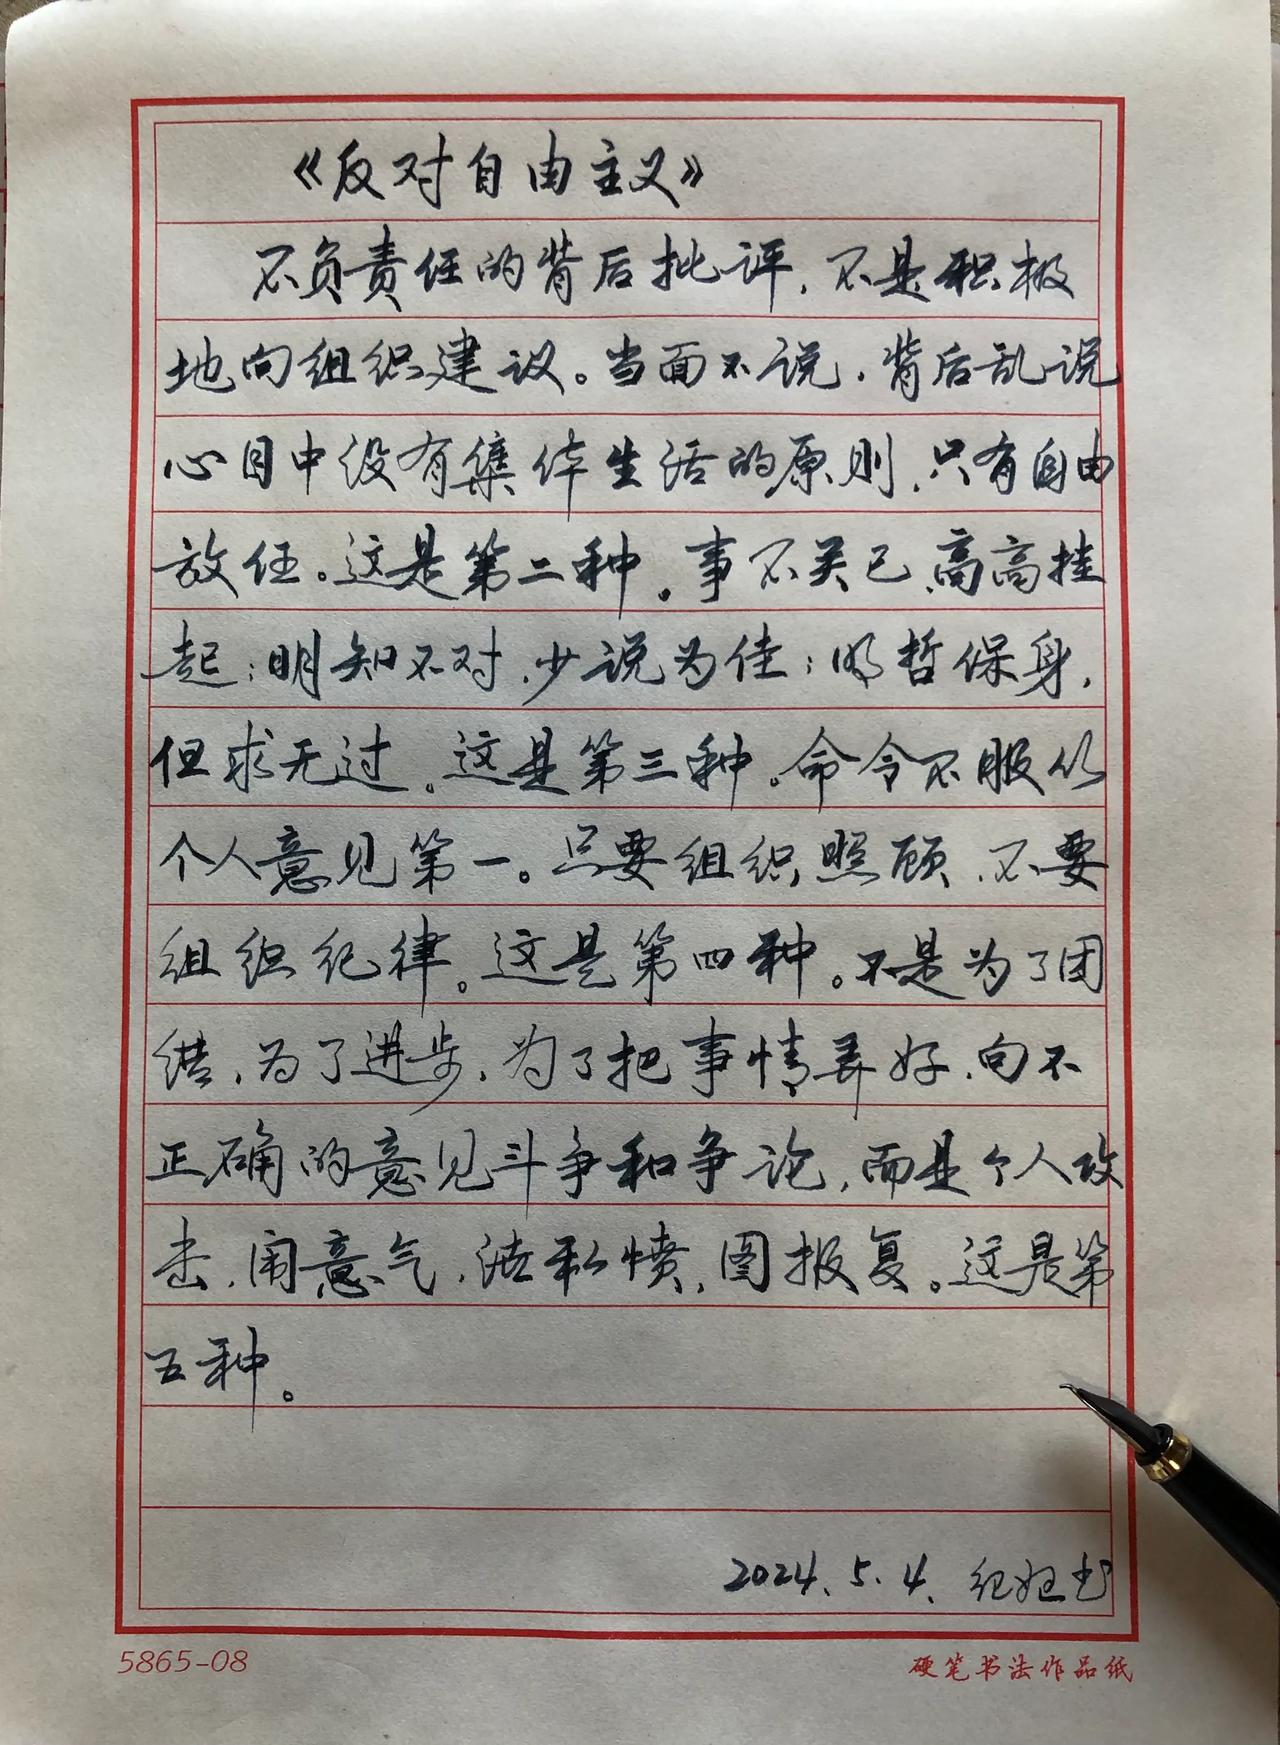 《反对自由主义》
不负责任的背后批评，不是积极
地向组织建议。当面不说，背后乱说
心目中没有集体生活的原则，只有自由
放任。这是第二种。事不关己，高高挂
起；明知不对，少说为佳；明哲保身，
但求无过。这是第三种。命令不服从
个人意见第一。只要组织照顾，不要
组织纪律。这是第四种。不是为了团
结，为了进步，为了把事情弄好，向不
正确的意见斗争和争论，而是个人攻
击，闹意气，泄私愤，图报复。这是第
五种。
2024.5.4. 书
5865-08
硬笔书法作品纸